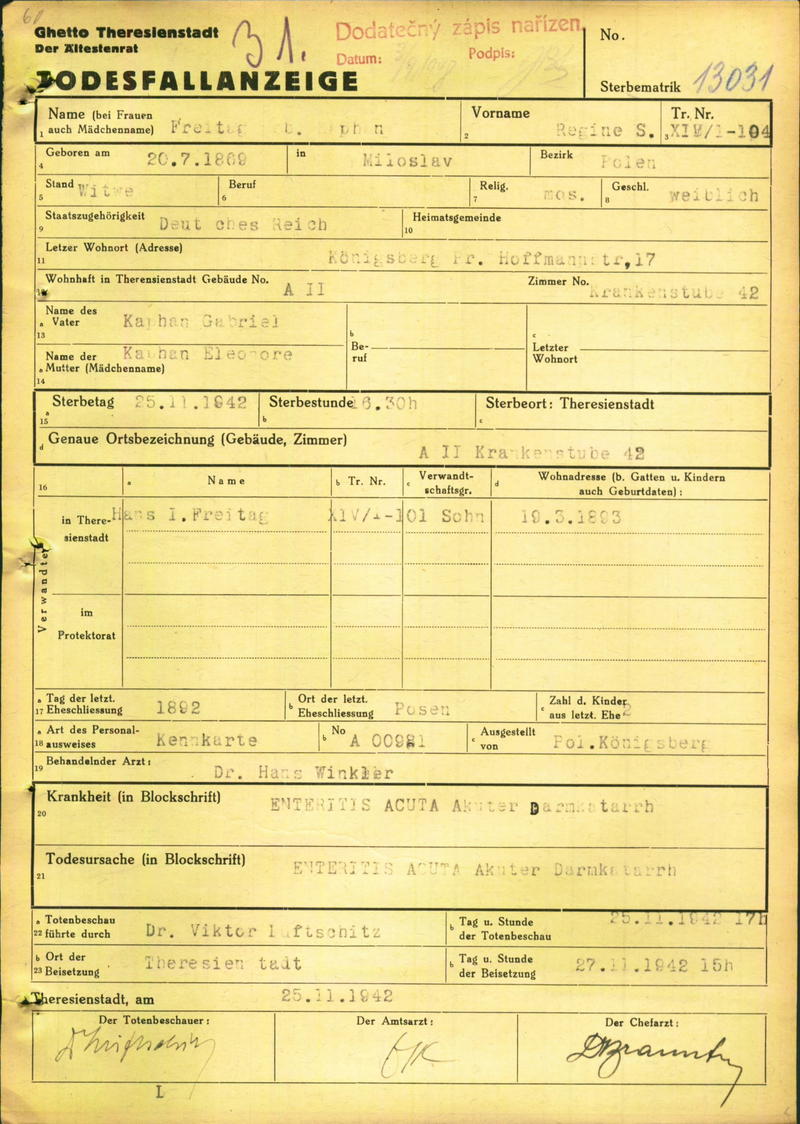 Ghetto Theresienstadt
Der Ältestenrat
TODESFALLANZEIGE
31.
Dodatečný zápis nařízen
Datum:
Podpis:
No.
Sterbematrik 13031
Name (bei Frauen
1 auch Mädchenname) Freitag
Vorname
2 Regine S.
Tr. Nr.
3 XIV/1-104
Geboren am
4 20.7.1869
in Miloslav
Bezirk Polen
Stand
5 Witwe
Beruf
6
Relig.
7 mos.
Geschl.
8 weiblich
Staatszugehörigkeit
9 Deut ches Reich
Heimatsgemeinde
10
Letzer Wohnort (Adresse)
11 Königsberg Pr. Hoffmannstr,17
Wohnhaft in Theresienstadt Gebäude No. A II
Zimmer No. Krankenstube 42
Name des
a Vater
13
Gabriel
Name der
a Mutter (Mädchenname)
14
Eleonore
b
Be-
ruf
c
Letzter
Wohnort
Sterbetag 25.11.1942
a
15
Sterbestunde 16.30h
b
Sterbeort: Theresienstadt
c
d Genaue Ortsbezeichnung (Gebäude, Zimmer)
A II Krankenstube 42
16
a Name
b Tr. Nr.
c Verwandt-
schaftsgr.
d Wohnadresse (b. Gatten u. Kindern
auch Geburtdaten):
Verwandte
in There-
sienstadt
Hans I.Freitag XIV/1-101 Sohn 19.3.1893
im
Protektorat
a Tag der letzt.
17 Eheschliessung 1892
b Ort der letzt.
Eheschliessung Posen
c Zahl d. Kinder
aus letzt. Ehe
a Art des Personal-
18 ausweises Kennkarte
b No A 00981
c Ausgestellt
von Pol.Königsberg
19 Behandelnder Arzt: Dr. Hans Winkler
Krankheit (in Blockschrift)
20
ENTERITIS ACUTA Akuter Darmkatarrh
Todesursache (in Blockschrift)
21
ENTERITIS ACUTA Akuter Darmkatarrh
a Totenbeschau
22 führte durch Dr. Viktor Luftschitz
b Tag u. Stunde
der Totenbeschau 25.11.1942 17h
b Ort der
23 Beisetzung Theresien tadt
b Tag u. Stunde
der Beisetzung 27.11.1942 15h
Theresienstadt, am 25.11.1942
Der Totenbeschauer:
Der Amtsarzt:
Der Chefarzt:
I